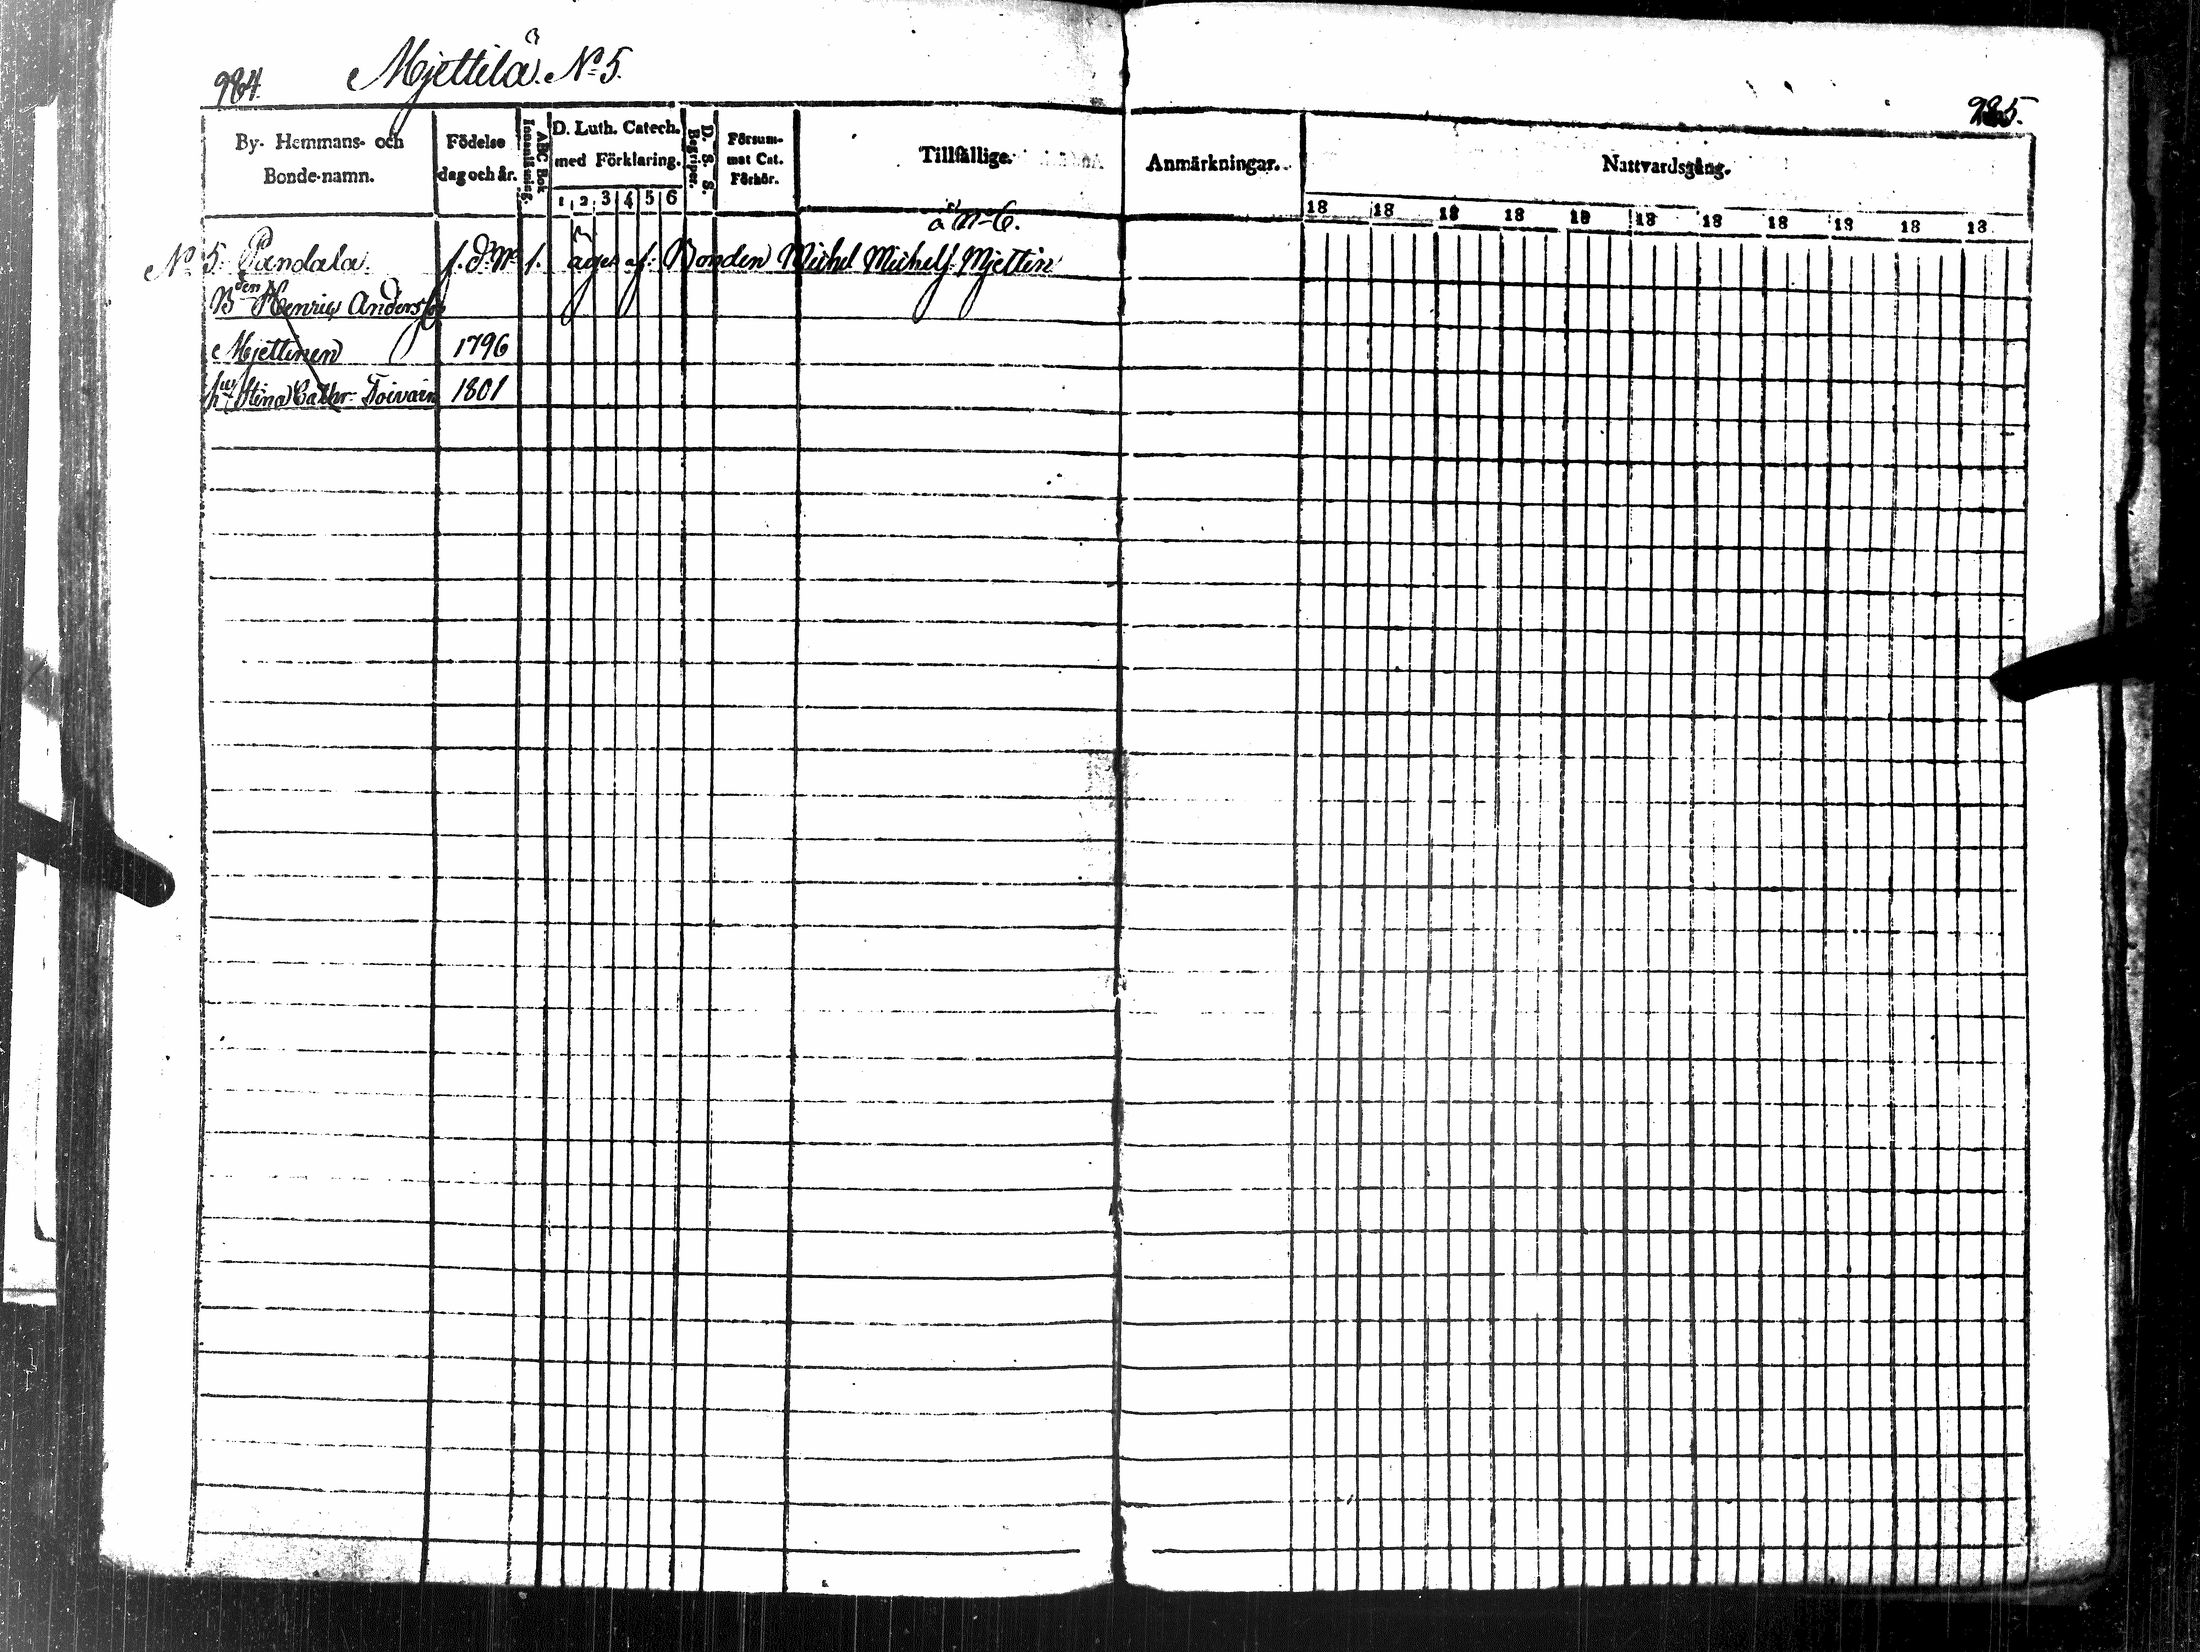 984.
Mjettilä. N:o 5.
985.
By- Hemmans- och Bonde-namn.
Födelse dag och år.
ABC Bok Innanläsning.
D. Luth. Catech. med Förklaring.
1 2 3 4 5 6
D. S. S. Begriper.
Försummat Cat. Förhör.
Tillfällige.
Anmärkningar.
Nattvardsgång.
18 18 18 18 18 18 18 18 18 18 18
å N:o 6.
N:o 5. Pandala. äges af Bonden Michel Michels: Mjettin
B:den Henric Andersson
Mjettinen 1796
hu Stina Cathr: Toivain 1801